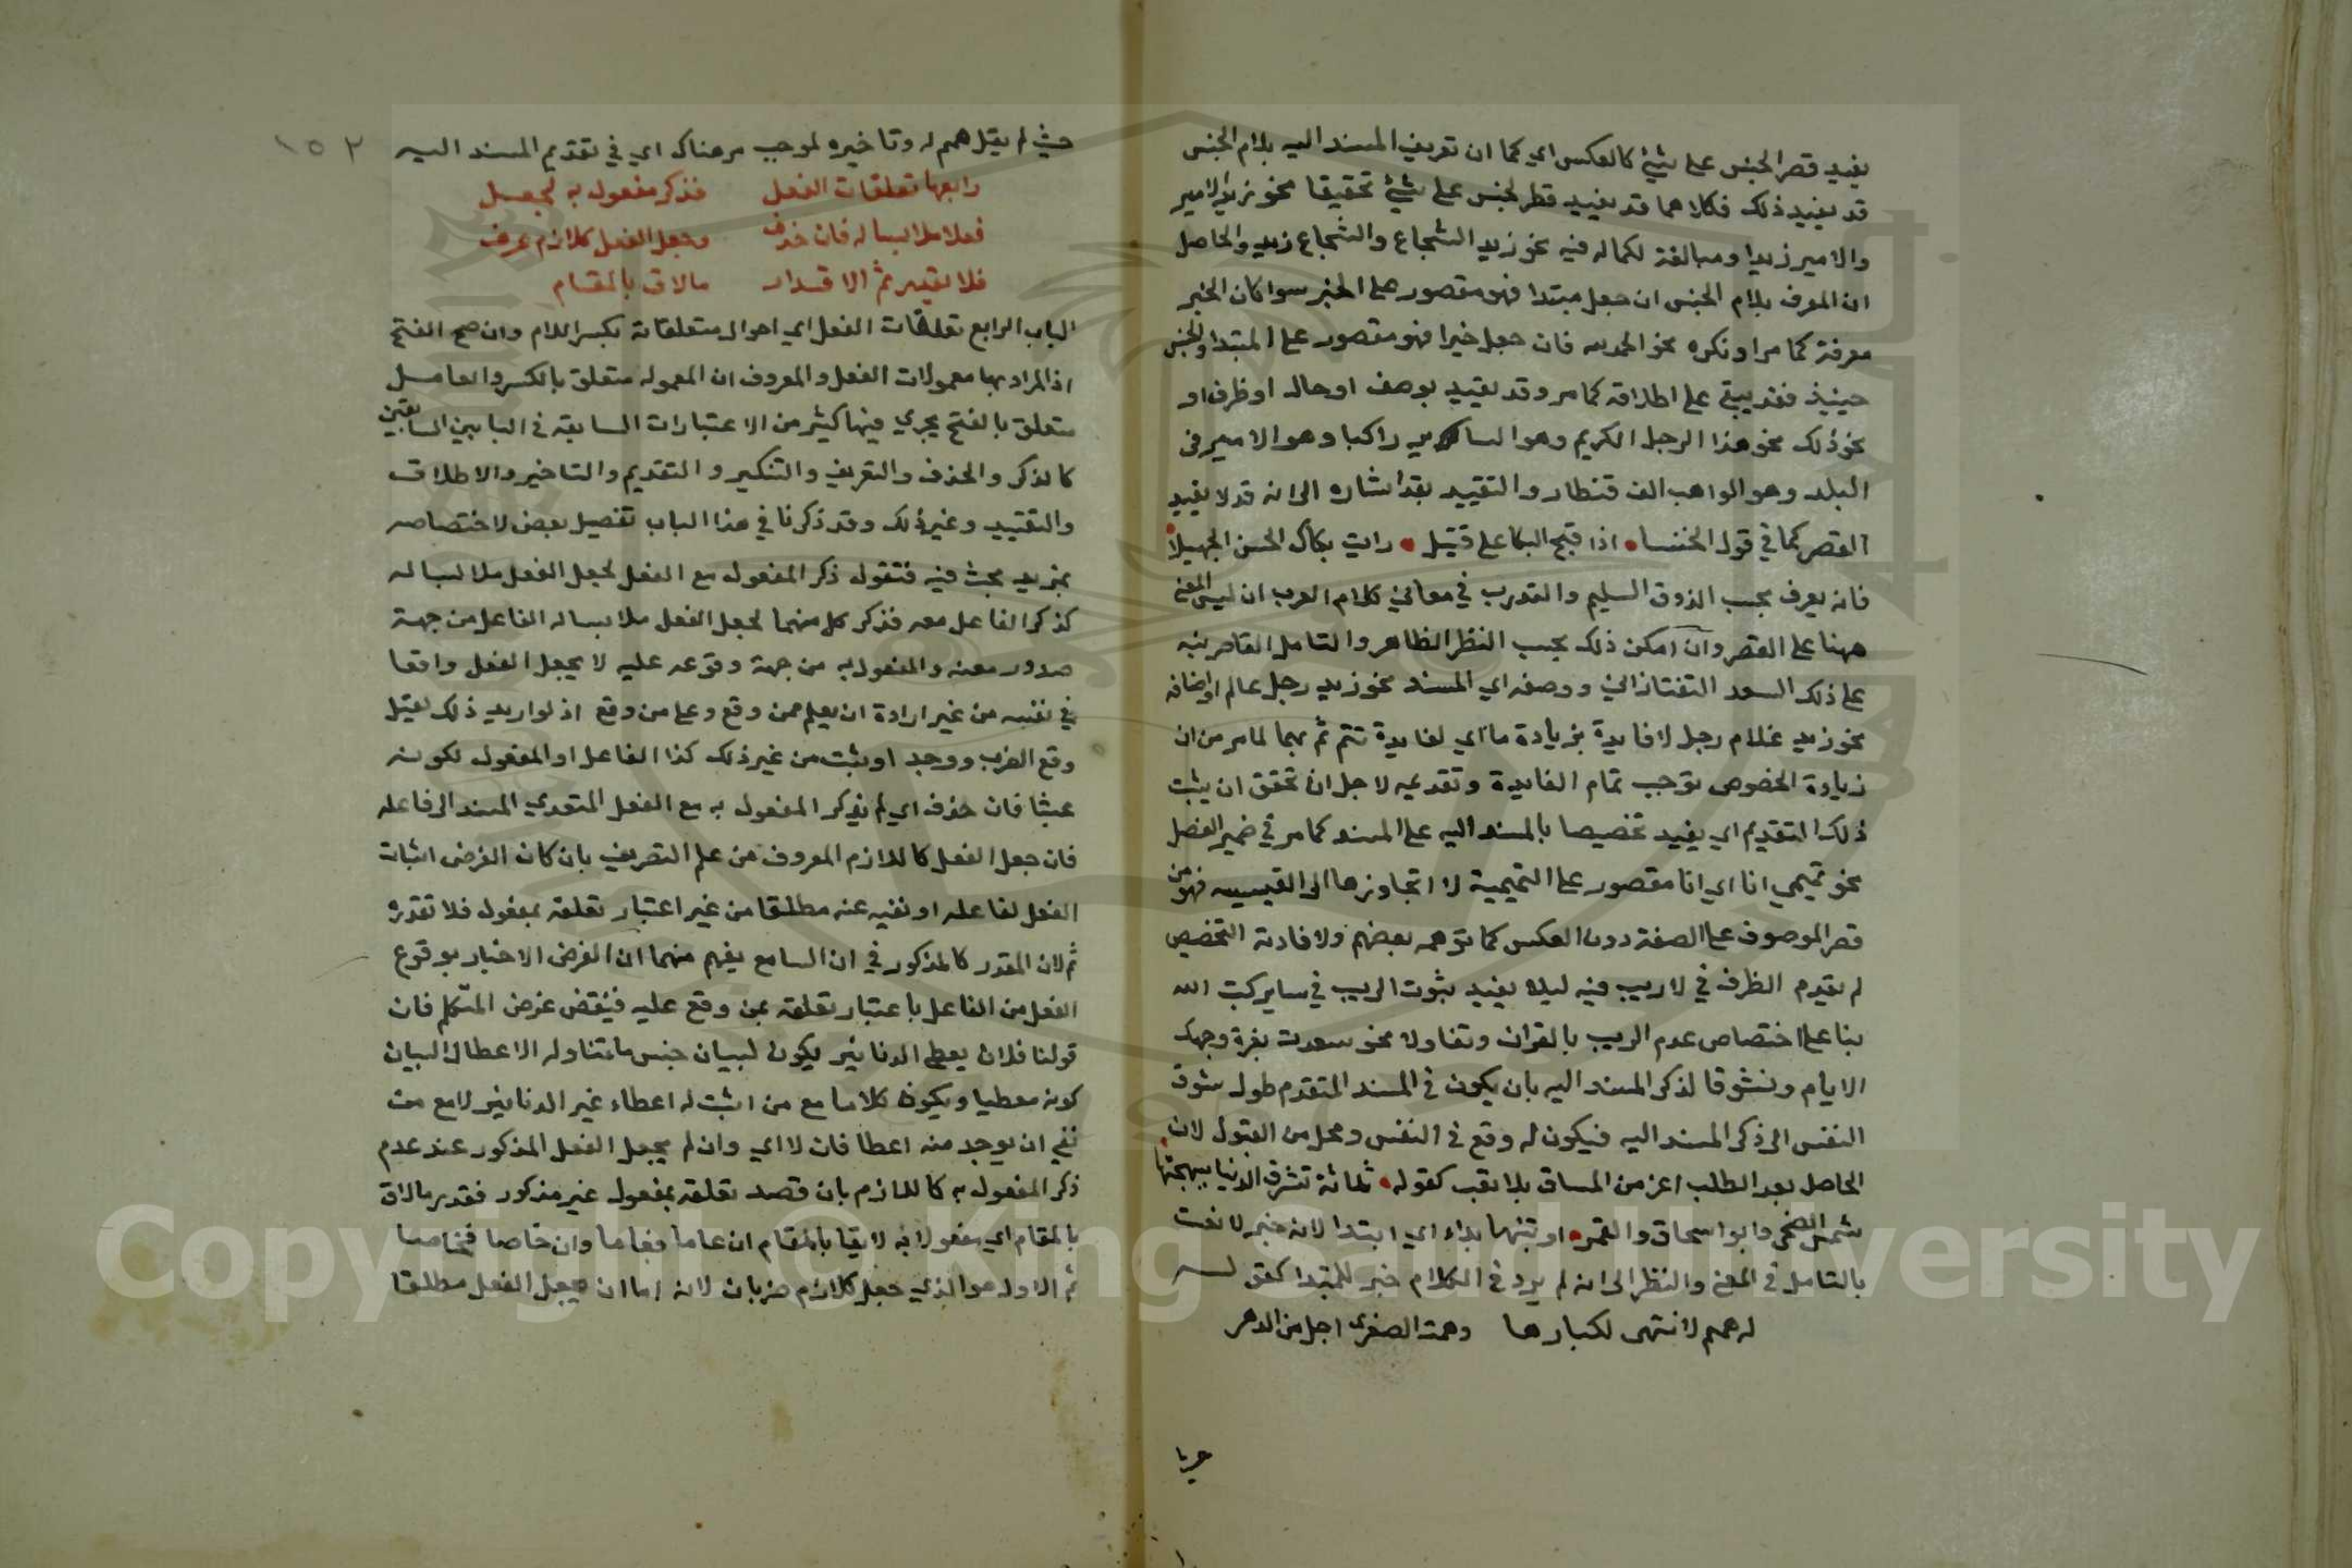 يفيد قصر الجنس على شيئ كالعكس اي كما ان تعريف المسند اليه بلام الجنس
قد يفيد ذلك فكلاهما قد يفيد قصر الجنس على شيئ تحقيقا نحو زيد الامير
والامير زيد او مبالغة لكماله فيه نحو زيد الشجاع والشجاع زيد والحاصل
ان المعرف بلام الجنس ان جعل مبتدا فهو مقصور على الخبر سوا كان الخبر
معرفة كما مر او نكره نحو الحمد لله فان جعل خبرا فهو مقصور على المبتدا والجنس
حينيذ فقد يبقى على اطلاقه كما مر وقد يقيد بوصف او حال او ظرف او
نحو ذلك نحو هذا الرجل الكريم وهو السا راكبا وهو الامير فى
البلد وهو الواهب الف قنطار والتقييد بقد اشاره الى انه قد لا يفيد
القصر كما في قول الخنسا • اذا قبح البكا على قتيل • رايت بكاك الحسن الجميلا
فانه يعرف بحسب الذوق السليم والتدرب في معاني كلام العرب ان ليس المعنى
ههنا على القصر وان امكن ذلك بحسب النظر الظاهر والتامل القاصر نبه
على ذلك السعد التفتازاني ووصفه اي المسند نحو زيد رجل عالم او اضافه
نحو زيد غلام رجل لافايدة بزيادة ما اي لفايدة تتم ثم بهما لما مر من ان
زيادة الخصوص توجب تمام الفايدة وتقديمه لاجل ان تحقق ان يثبت
ذلك التقديم اي يفيد تخصيصا بالمسند اليه على المسند كما مر في ضمير الفصل
نحو تميمي انا اي انا مقصور على التميمية لا اتجاوزها الى القيسيه فهو من
قصر الموصوف على الصفة دون العكس كما توهمه بعضهم ولافادته التخصيص
لم يقدم الظرف في لا ريب فيه ليلا يفيد ثبوت الريب في ساير كتب الله
بنا على اختصاص عدم الريب بالقران وتفاولا نحو سعدت بغرة وجهك
الايام وتشوقا لذكر المسند اليه بان يكون في المسند المتقدم طول شوق
النفس الى ذكر المسند اليه فيكون له وقع في النفس ومحل من القبول لان
الحاصل بعد الطلب اعز من المساق بلا تعب كقوله • ثلاثة تشرق الدنيا ببهجتها
شمس الضحى وابو اسحاق والقمر • او تنبها بداء اي ابتدا لانه خبر لا نعت
بالتامل في المعنى والنظر الى انه لم يرد في الكلام خبر للمبتدا كقوله
له همم لا منتهى لكبارها وهمته الصغرى اجل من الدهر
حيث لم يقل همم له وتاخيره لموجب مر هناك اي في تقديم المسند اليه
١٥٢
رابعها تعلقات الفعل فذكر مفعول به لجعل
فعلا ملابسا له فان حذف وجعل الفعل كلازم عرف
فلا تقدير ثم الا قدار ما لاق بالمقام
الباب الرابع تعلقات الفعل اي احوال متعلقاته بكسر اللام وان صح الفتح
اذ المراد بها معمولات الفعل والمعروف ان المعمول متعلق بالكسر والعامل
متعلق بالفتح يجري فيها كثير من الاعتبارات السابقة في البابين السابقين
كالذكر والحذف والتعريف والتنكير والتقديم والتاخير والاطلاق
والتقييد وغير ذلك وقد ذكرنا في هذا الباب تفصيل بعض لاختصاصه
بمزيد بحث فيه فتقول ذكر المفعول مع الفعل لجعل الفعل ملابسا له
كذكر الفاعل معه فذكر كل منهما لجعل الفعل ملابسا له الفاعل من جهة
صدوره عنه والمفعول به من جهة وقوعه عليه لا يجعل الفعل واقعا
في نفسه من غير ارادة ان يعلم ممن وقع وعلى من وقع اذ لو اريد ذلك لقيل
وقع الضرب ووجد او ثبت من غير ذلك كذا الفاعل او المفعول لكونه
عبثا فان حذف اي لم يذكر المفعول به مع الفعل المتعدي المسند الى فاعله
فان جعل الفعل كاللازم المعروف من علم التصريف بان كان الغرض اثبات
الفعل لفاعله او نفيه عنه مطلقا من غير اعتبار تعلقه بمفعول فلا تقدره
ثم لان المقدر كالمذكور في ان السامع يفهم منهما ان الغرض الاخبار بوقوع
الفعل من الفاعل باعتبار تعلقه بمن وقع عليه فينقض غرض المتكلم فان
قولنا فلان يعطي الدنانير يكون لبيان جنس ما يتناوله الاعطا لا لبيان
كونه معطيا ويكون كلاما مع من اثبت له اعطاء غير الدنانير لا مع من
نفى ان يوجد منه اعطا فان لا اي وان لم يجعل الفعل المذكور عند عدم
ذكر المفعول به كاللازم بان قصد تعلقه بمفعول غير مذكور فقدر ما لاق
بالمقام اي مفعولا به لايقا بالمقام ان عاما فعاما وان خاصا فخاصا
ثم الاول هو الذي جعل كلازم ضربان لانه اما ان يجعل الفعل مطلقا
Copyright © King Saud University